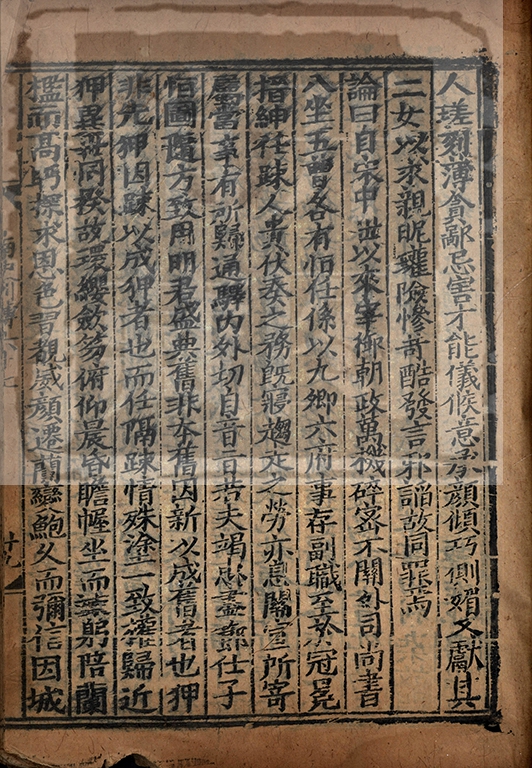 人瑳烈薄貪鄙忌害才能儀候意承顏傾巧側媚又獻其
二女以求親昵雖險慘苛酷發言邪諂故同罪焉
論曰自宋中世以來宰御朝政萬機碎宻不關外司尚書
八坐五曹各有恒任係以九卿六府事存副職至於冠冕
搢紳任踈人貴伏奏之務旣寢趨走之勞亦息關宣所寄
屬當事有所歸通驛内外切自音旨若夫竭忠盡節仕子
恒圖隨方致用明君盛典舊非本舊因新以成舊者也狎
非先狎因踈以成狎者也而任隔踈情殊塗一致權歸近
狎異世同揆故環纓斂笏俯仰晨昏瞻幄坐而竦躬陪蘭
檻而高眄探求恩色習覩威顏遷蘭變鮑久而彌信因城